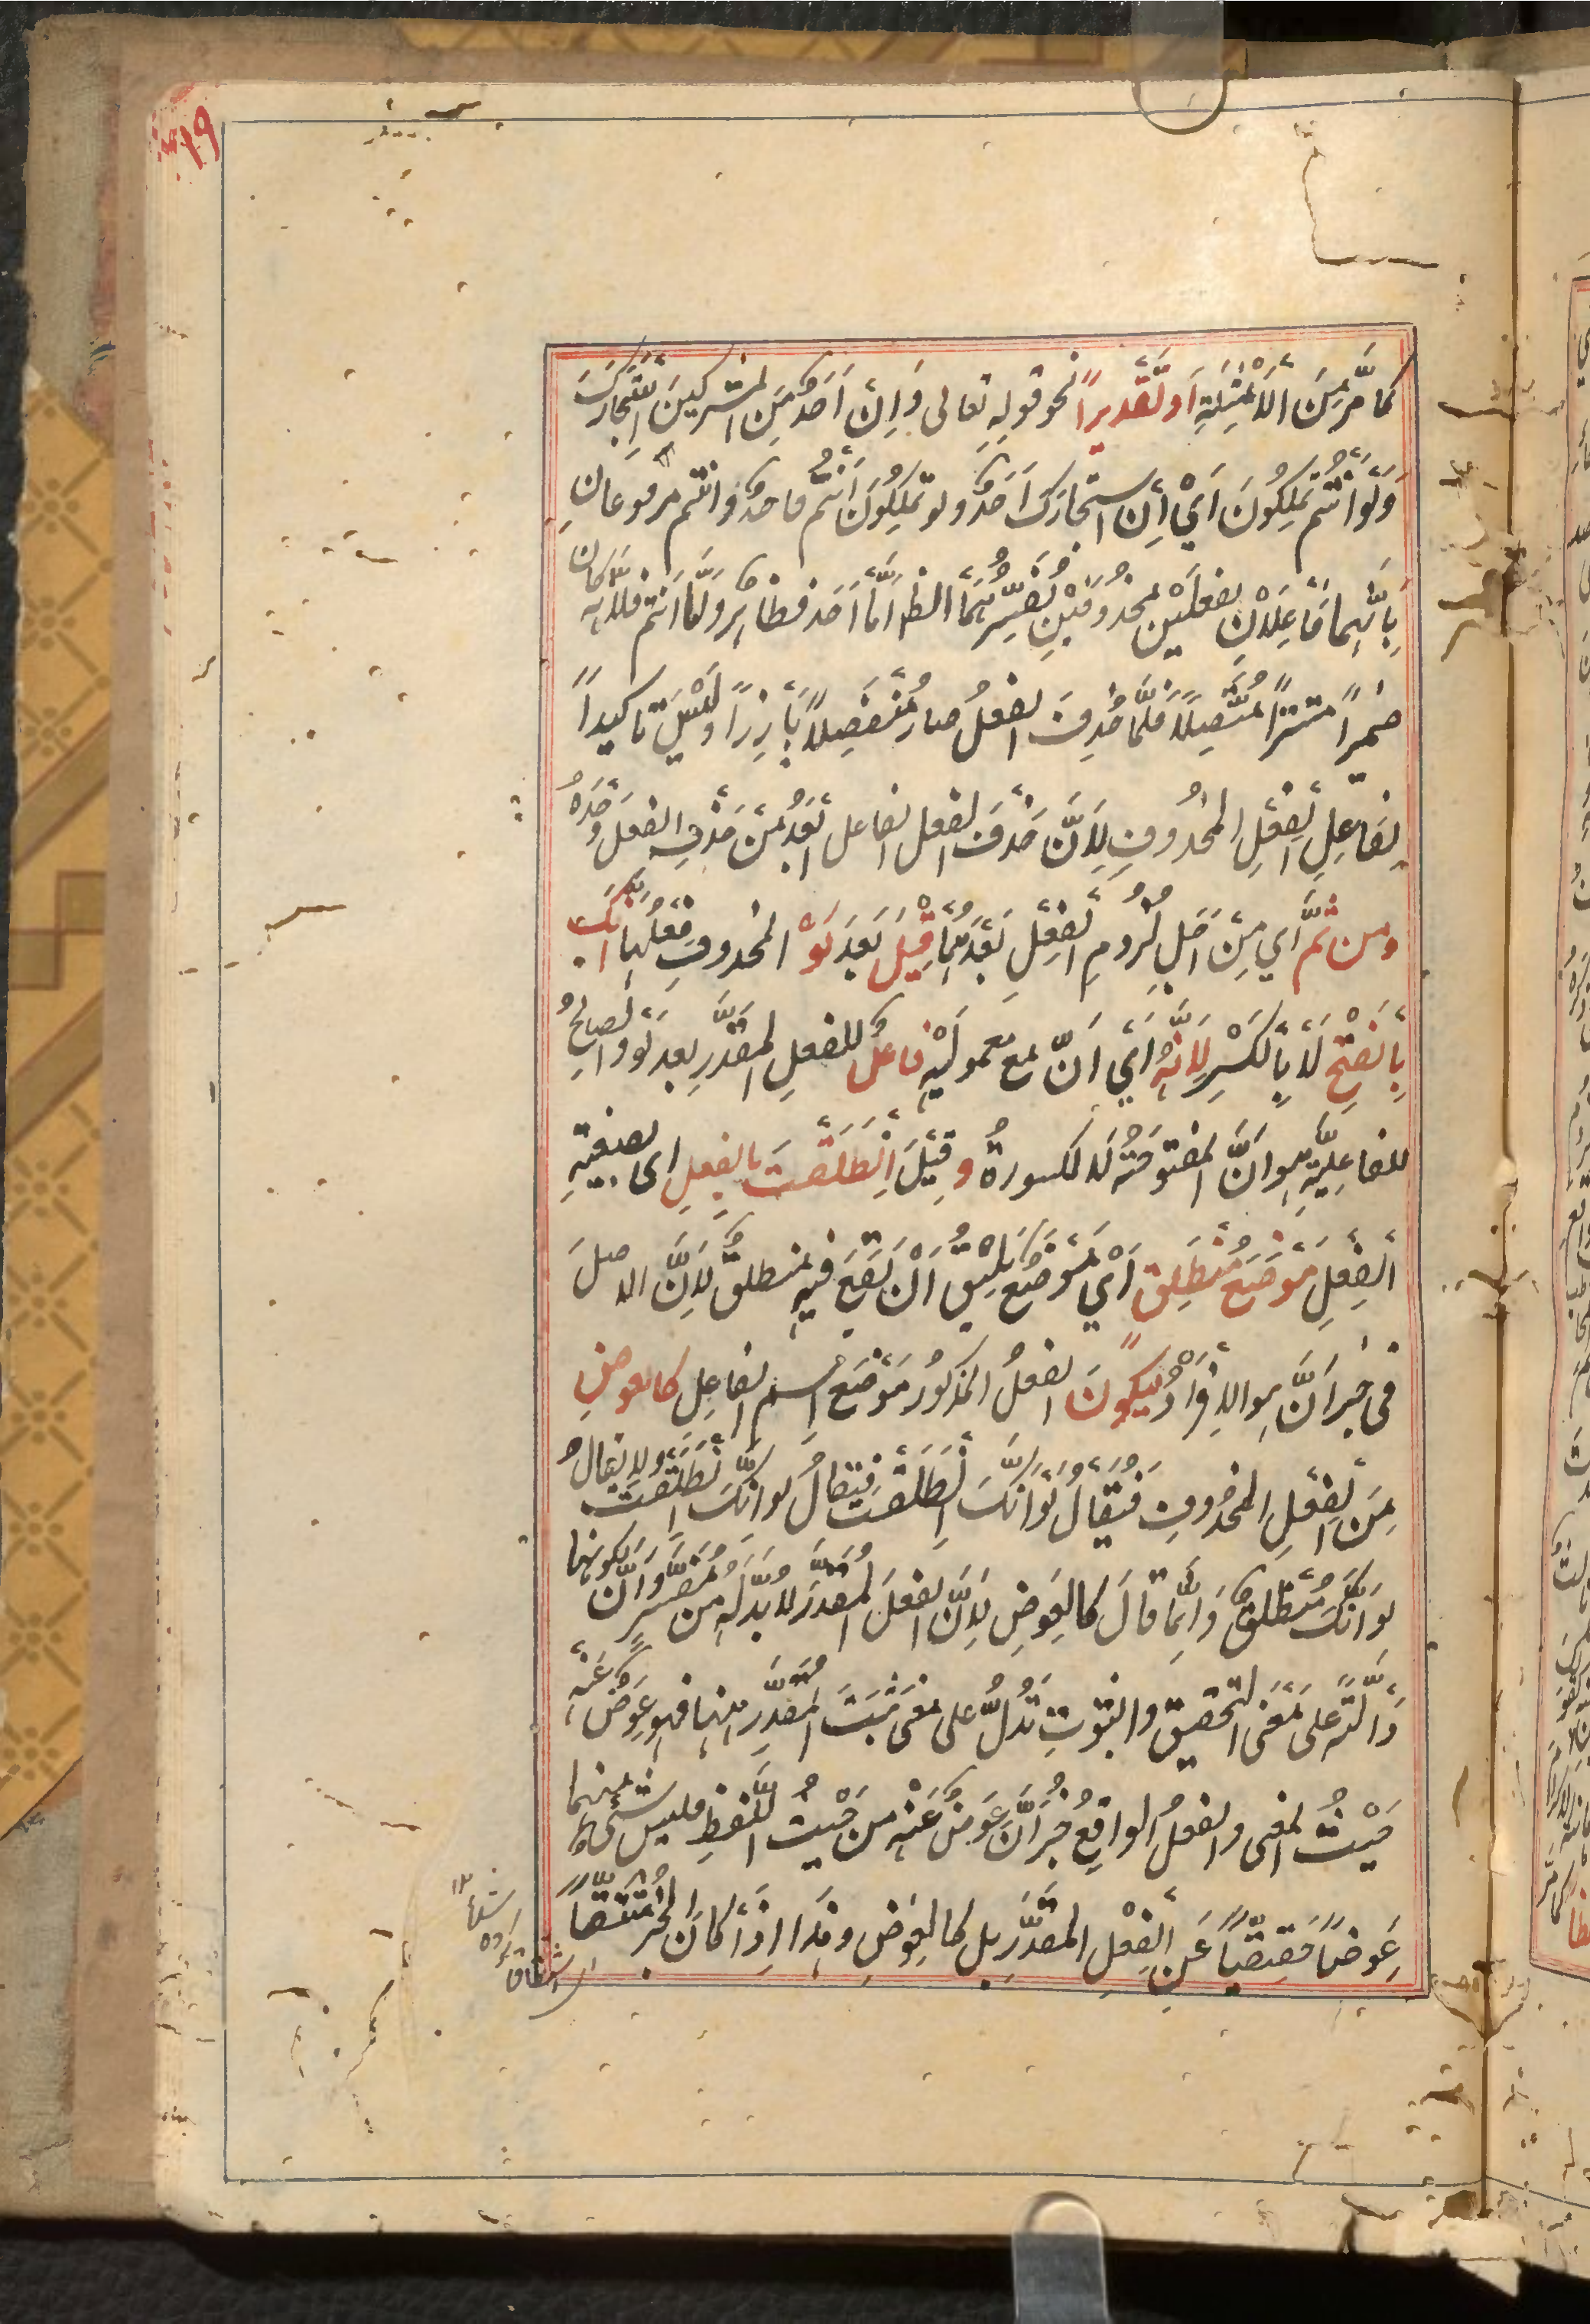 ١٩
كَمَا مَرَّ مِنَ الْاَمْثِلَةِ اَوْ تَقْدِيرًا نحو قولِهِ تعالى وَاِنْ اَحَدٌ مِنَ المشركينَ اسْتَجَارَكَ
وَلَوْ اَنْتُمْ تَمْلِكُونَ اَيْ اِنِ استجارَكَ اَحَدٌ ولو تَمْلِكُونَ اَنْتُمْ فاحدٌ وانتم مرفوعانِ
بِاَنَّهُمَا فَاعِلَانِ لفعلَيْنِ محذُوفَيْنِ يُفَسِّرُهُمَا الظ اَمَّا اَحَد فظاهِرٌ وَاَمَّا اَنتم فلانّه كان
ضميرًا مستترًا مُتَّصِلًا فَلَمَّا حُذِفَ الفعلُ صار مُنْفَصِلًا بَارِزًا وَلَيْسَ تاكيدًا
لِفَاعِلِ الْفِعْلِ المحذُوفِ لِاَنَّ حَذْفَ الفعل الفاعل اَبْعَدُ مِنْ حَذْفِ الفعل وَحْدَهُ
ومن ثَمَّ اَي مِنْ اَجْلِ لُزُومِ الْفِعْلِ بَعْدَهُمَا قِيلَ بَعْدَ لَوْ المحذوفِ فِعْلُهَا اَنَّكَ
بِالْفَتْحِ لَا بِالْكَسْرِ لِاَنَّهُ اَيْ اَنَّ مع معمولَيْهِ فاعلٌ للفعلِ المقَدَّرِ بعد لَوْ والصالحُ
للفاعِلِيَّةِ هو اَنَّ المفتوحَةُ لَا المكسورةُ وقِيلَ اِنْطَلَقْتَ بالفِعلِ اى بصيغةِ
الْفِعْلِ مَوْضِعَ مُنْطَلِقٍ اَيْ مَوْضِعٌ يَلِيقُ اَنْ يَقَعَ فيهِ منطلقٌ لِاَنَّ الاصلَ
فى خبر اَنَّ هو الاِفْرَادُ لِيَكُونَ الفعلُ المذكورُ مَوْضِعَ اسم الفاعلِ كالعوضِ
مِنَ الْفِعْلِ المحذُوفِ فَيُقَالُ لَوْ اَنَّكَ اِنْطَلَقْتَ فيُقالُ لو اَنَّكَ اِنْطَلَقْتَ ولا يقالُ
لو اَنَّكَ مُنْطَلِقٌ وَاِنَّمَا قالَ كالعِوَضِ لِاَنَّ الفعلَ المُقَدَّرَ لا بُدَّ لَهُ من مُفَسِّرٍ وَاَنَّ لكونها
دَالَّةً على مَعْنَى التحقيقِ والثبوتِ تَدُلُّ على معنى ثَبَتَ المُقَدَّرِ ههنا فهو عِوَضٌ عَنْهُ
حَيْثُ المعنى والفعلُ الواقعُ خَبَرَ اَنَّ عِوَضٌ عَنْهُ من حَيْثُ اللَّفظِ فليس شىءٌ منهما
عِوَضًا حَقِيقِيًّا عَنِ الْفِعْلِ المُقَدَّرِ بل كالعِوَضِ وهٰذا اِذَا كانَ الخبرُ مُشْتَقًّا